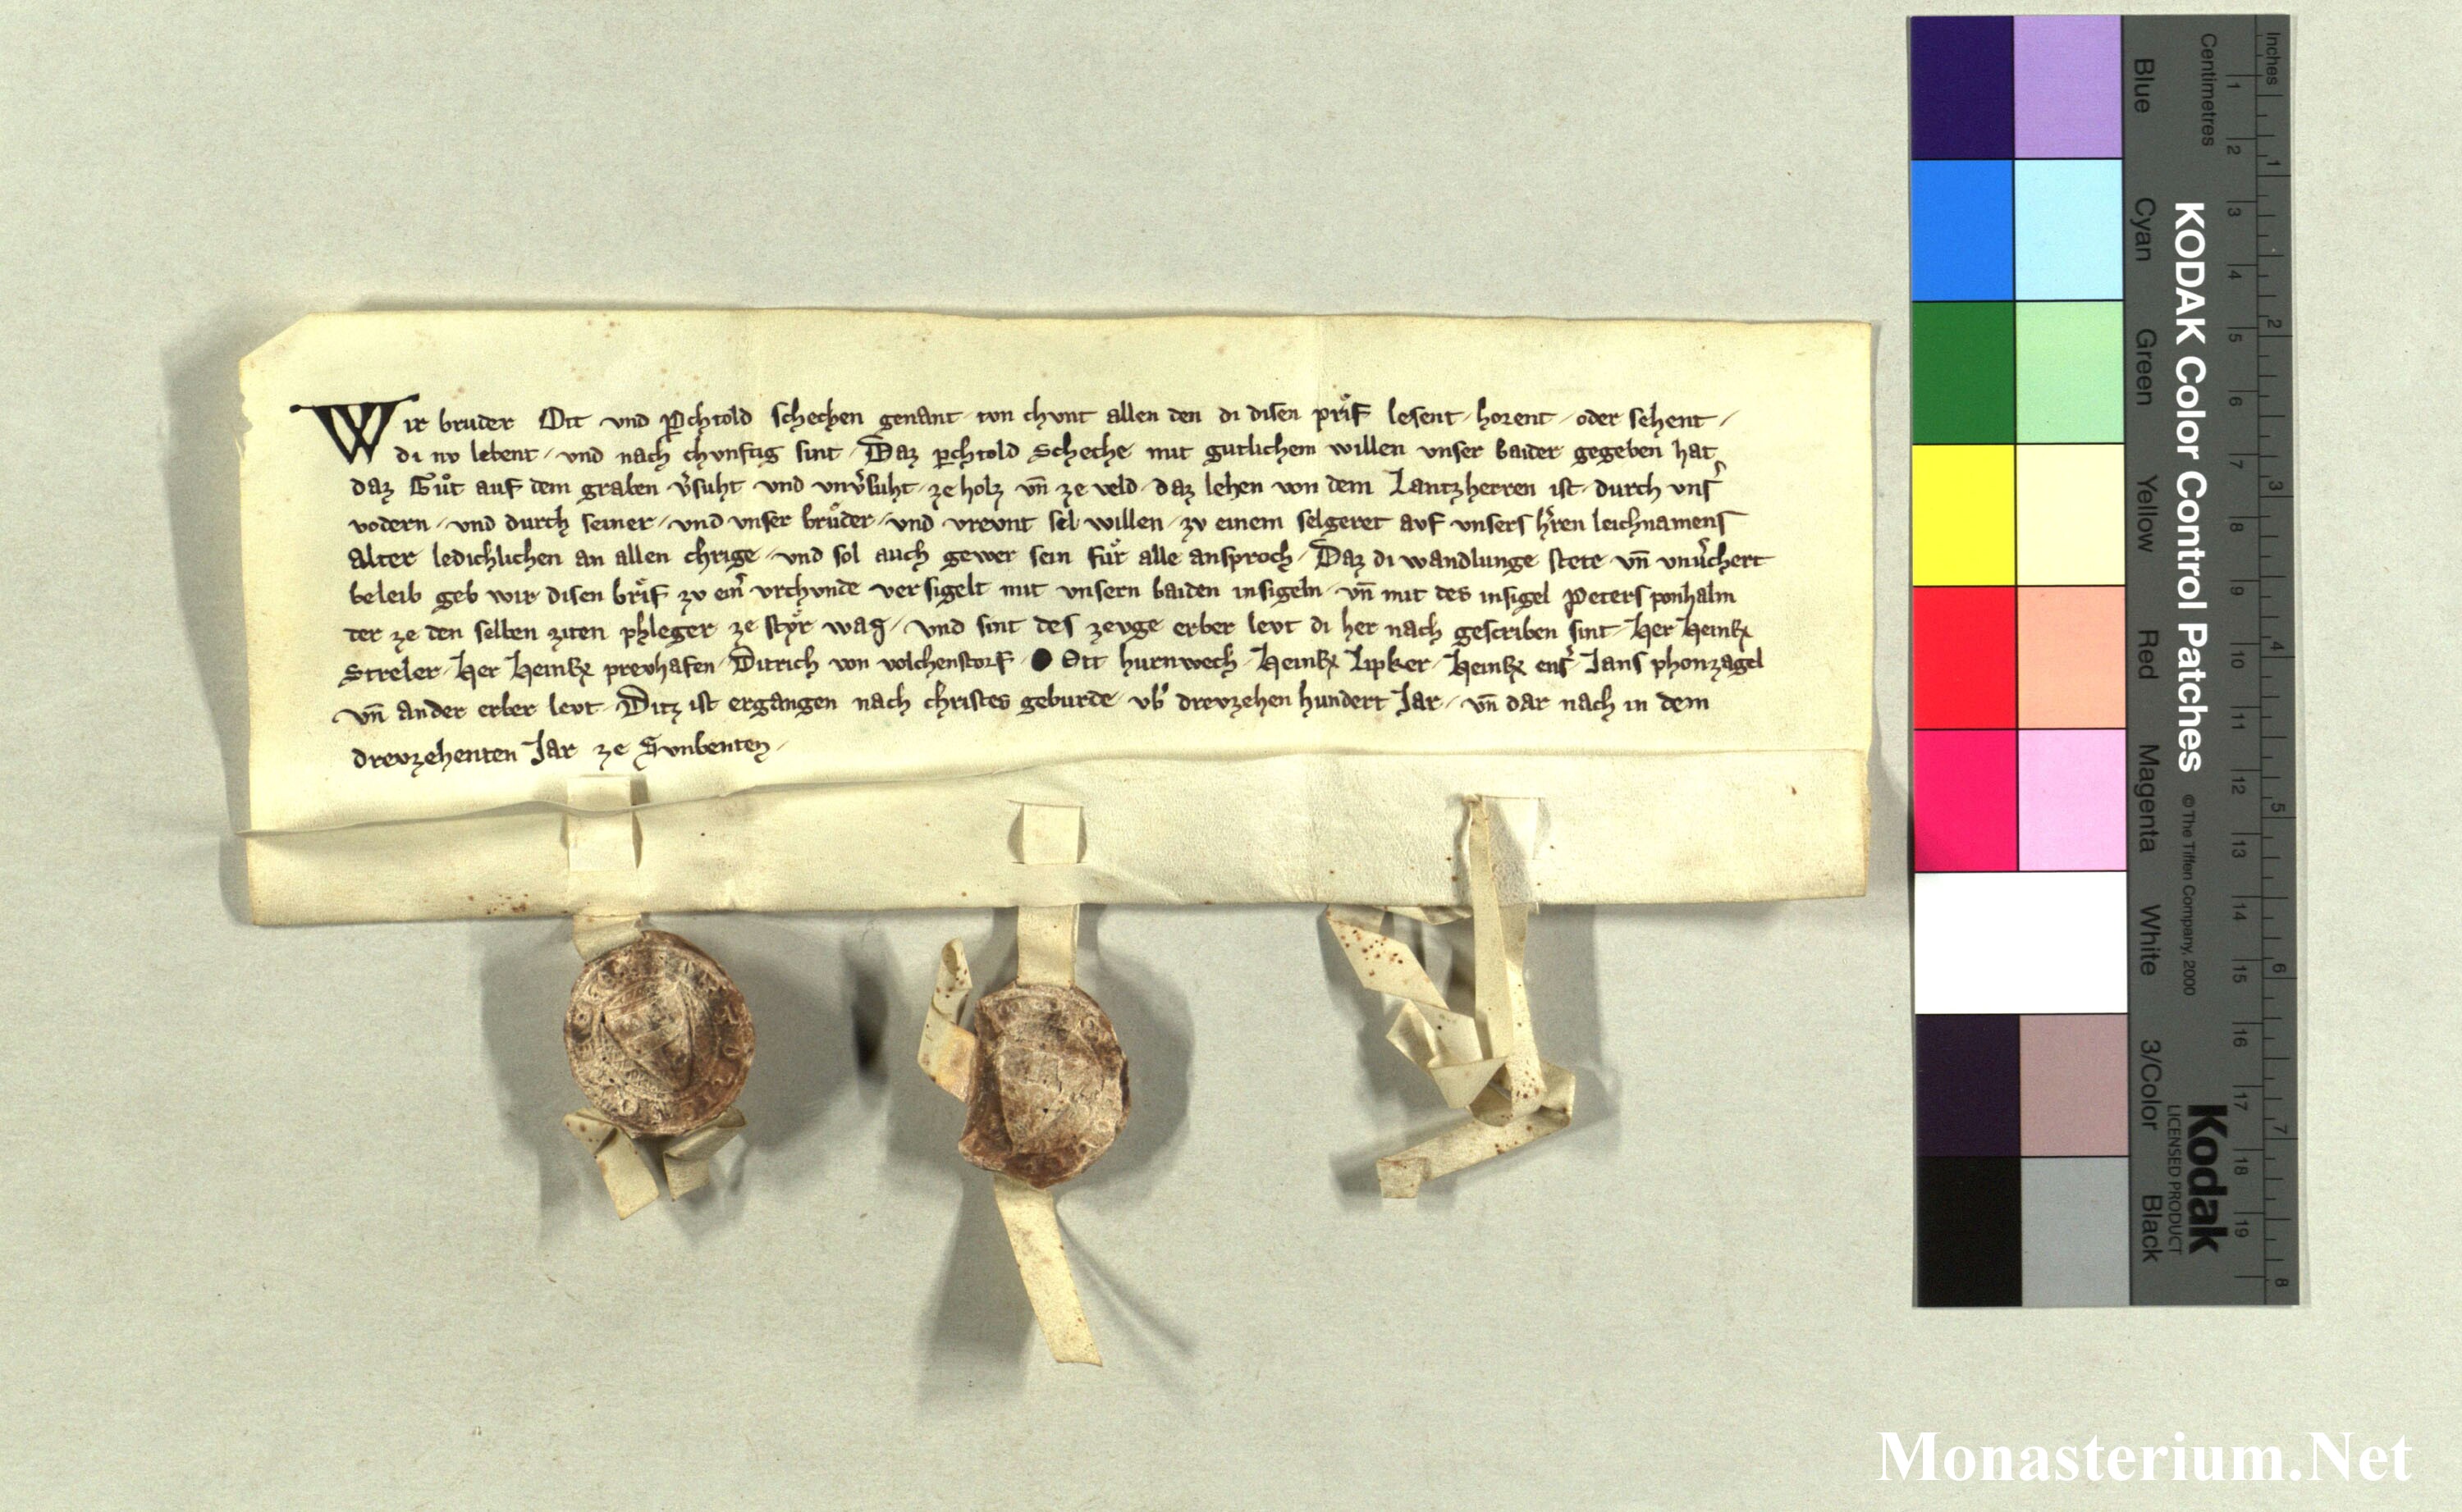 Wir bruder Ott vnd P̲chtold schechen genant ton chvnt allen den di disen prif lesent / horent / oder sehent /
di nv lebent / vnd nach chvnftig sint / Daz p̲chtold Scheche mit gutlichem willen vnser baider gegeben hat
daz Gůt auf dem graben v̉suht vnd vnv̉suht / ze holz vn̄ ze veld / daz lehen von dem Lantzherren ist / durch vnsˀ
vodern / vnd durch seiner / vnd vnser brůder / vnd vrevnt sel willen / zv einem selgeret avf vnsers hˀren leichnamens
alter ledichlichen an allen chrige / vnd sol auch gewer sein fůr alle ansproch / Daz di wandlunge stete vn̄ vnuˀchert
beleib geb wir disen brif zv einˀ vrchvnde versigelt mit vnsern baiden insigeln / vn̄ mit des insigel Peters ponhalm
der ze den selben ziten phleger ze styr waz / vnd sint des zevge erber levt di her nach gescriben sint / Her Heinr̄
Streler / Her Heinr̄ prevhafen / Ditrich von volchenstorf / Ott hurnwech / Heinr̄ Lipker / Heinr̄ ensˀ Jans phonzagel
vn̄ ander erber levt / Ditz ist ergangen nach christes geburde / vbˀ drevzehen hundert Jar / vn̄ dar nach in dem
drevzehenten Jar ze Svnbenten /
Inches
Centimetres
1 2 3 4 5 6 7 8 9 10 11 12 13 14 15 16 17 18 19
1 2 3 4 5 6 7 8
KODAK Color Control Patches
© The Tiffen Company, 2000
Kodak
LICENSED PRODUCT
Blue Cyan Green Yellow Red Magenta White 3/Color Black
Monasterium.Net